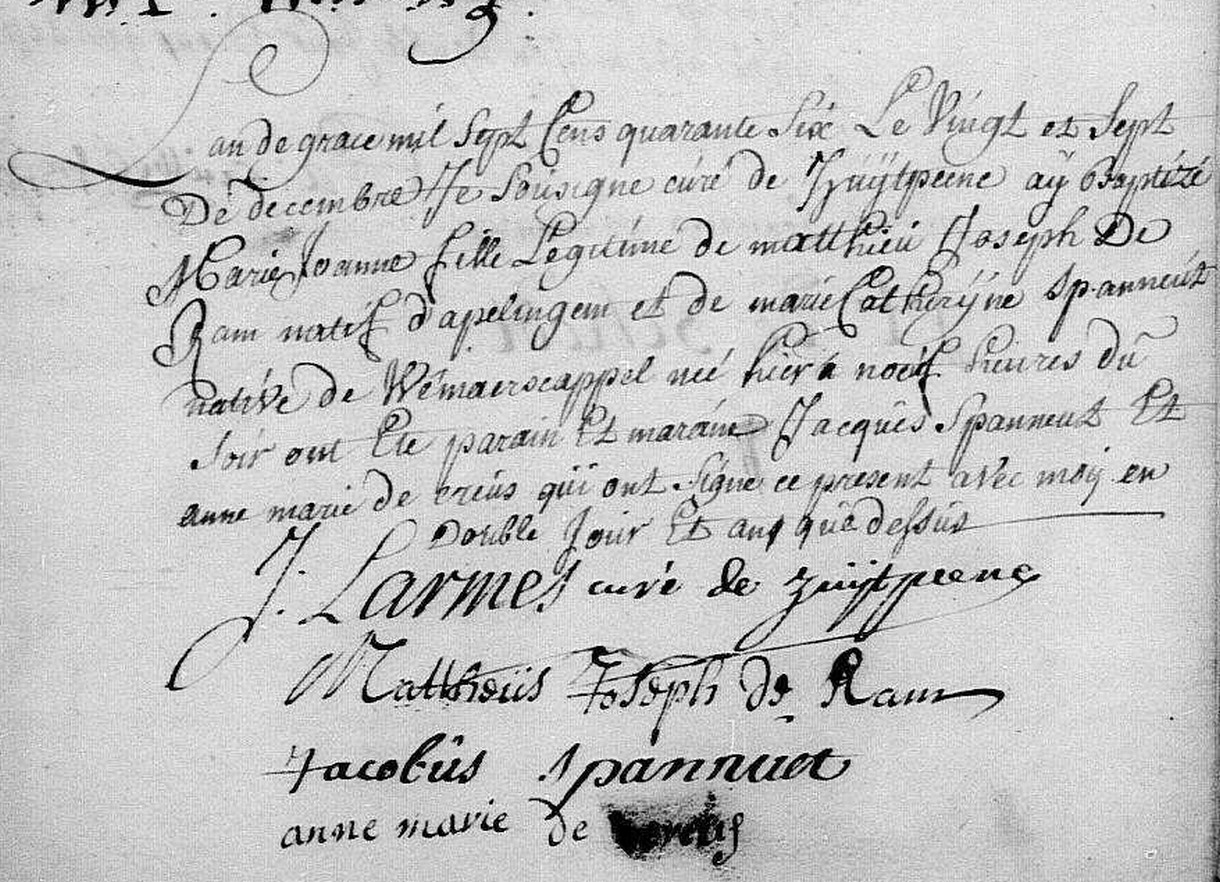 L
an de grace mil Sept Cens quarante Six Le Vingt et Sept
De decembre Je Soúsigne cúré de Zúÿtpeene aÿ Baptézé
Marie Joanne fille Legitíme de matthieú Joseph De
Ram natif d'apelingem et de marie Catherÿne Spanneút
natíve de Wemaerscappel neé hier à noeúf heúres dú
Soir ont Eté parain Et maraine Jacqúes Spanneút Et
anne marie de creús qúi ont Signe ce present avec moÿ en
Double Joúr Et an qúe dessús
J. Larmes curé de zuÿtpeene
Mattheüs Joseph de Ram
Jacobús Spannuet
anne marie de